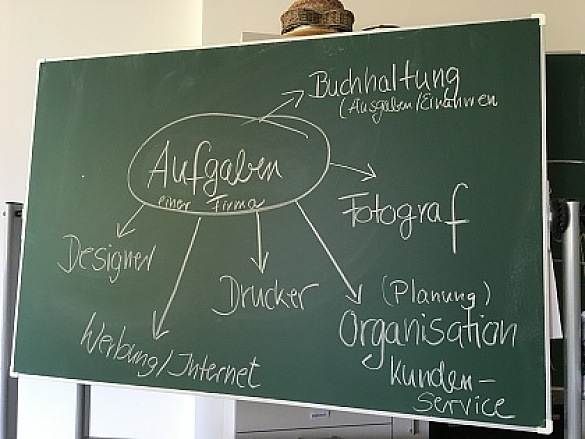 Buchhaltung
(Ausgaben/Einahmen
Aufgaben
einer Firma
Fotograf
Designer
Drucker
(Planung)
Organisation
Werbung/Internet
Kunden-
Service